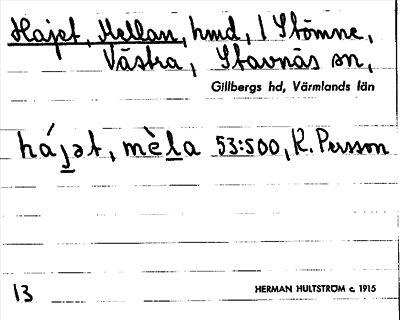 Hajet, Mellan, hmd, / Stömne,
Västra, Stavnäs sn,
Gillbergs hd, Värmlands län
hájət, mèla 53:500, K. Persson
13 HERMAN HULTSTRÖM c. 1915